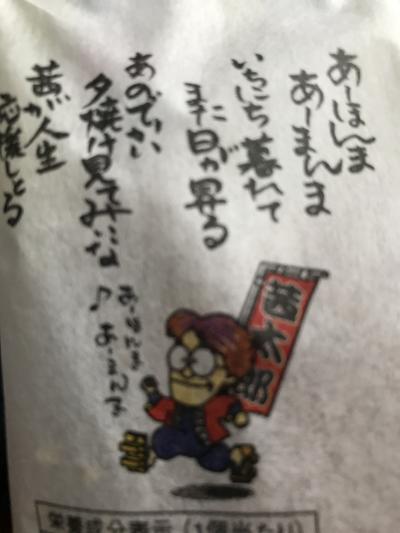 あーほんま
あーまんま
いちにち暮れて
また日が昇る
あのでっかい
夕焼け見てみいな
茜が人生
応援しとる
♪あーほんま
あーまんま
茜太郎
栄養成分表示(1個当たり)